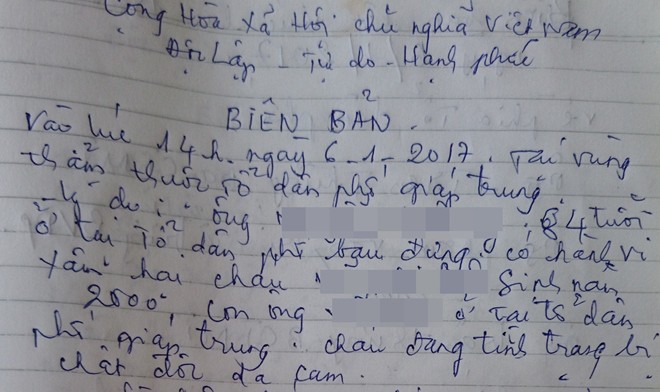 Cộng Hòa Xã Hội chủ nghĩa Việt Nam
Độc Lập - Tự do - Hạnh phúc
BIÊN BẢN.
Vào lúc 14h. ngày 6-1-2017. Tại vùng
thẩm thuộc tổ dân phố giáp trung.
- Lý do: ông 84 tuổi
ở tại tổ dân phố đứng có hành vi
xâm hại cháu Sinh năm
2000, con ông ở tại tổ dân
phố giáp trung. cháu đang tình trạng bị
chất độc da cam.